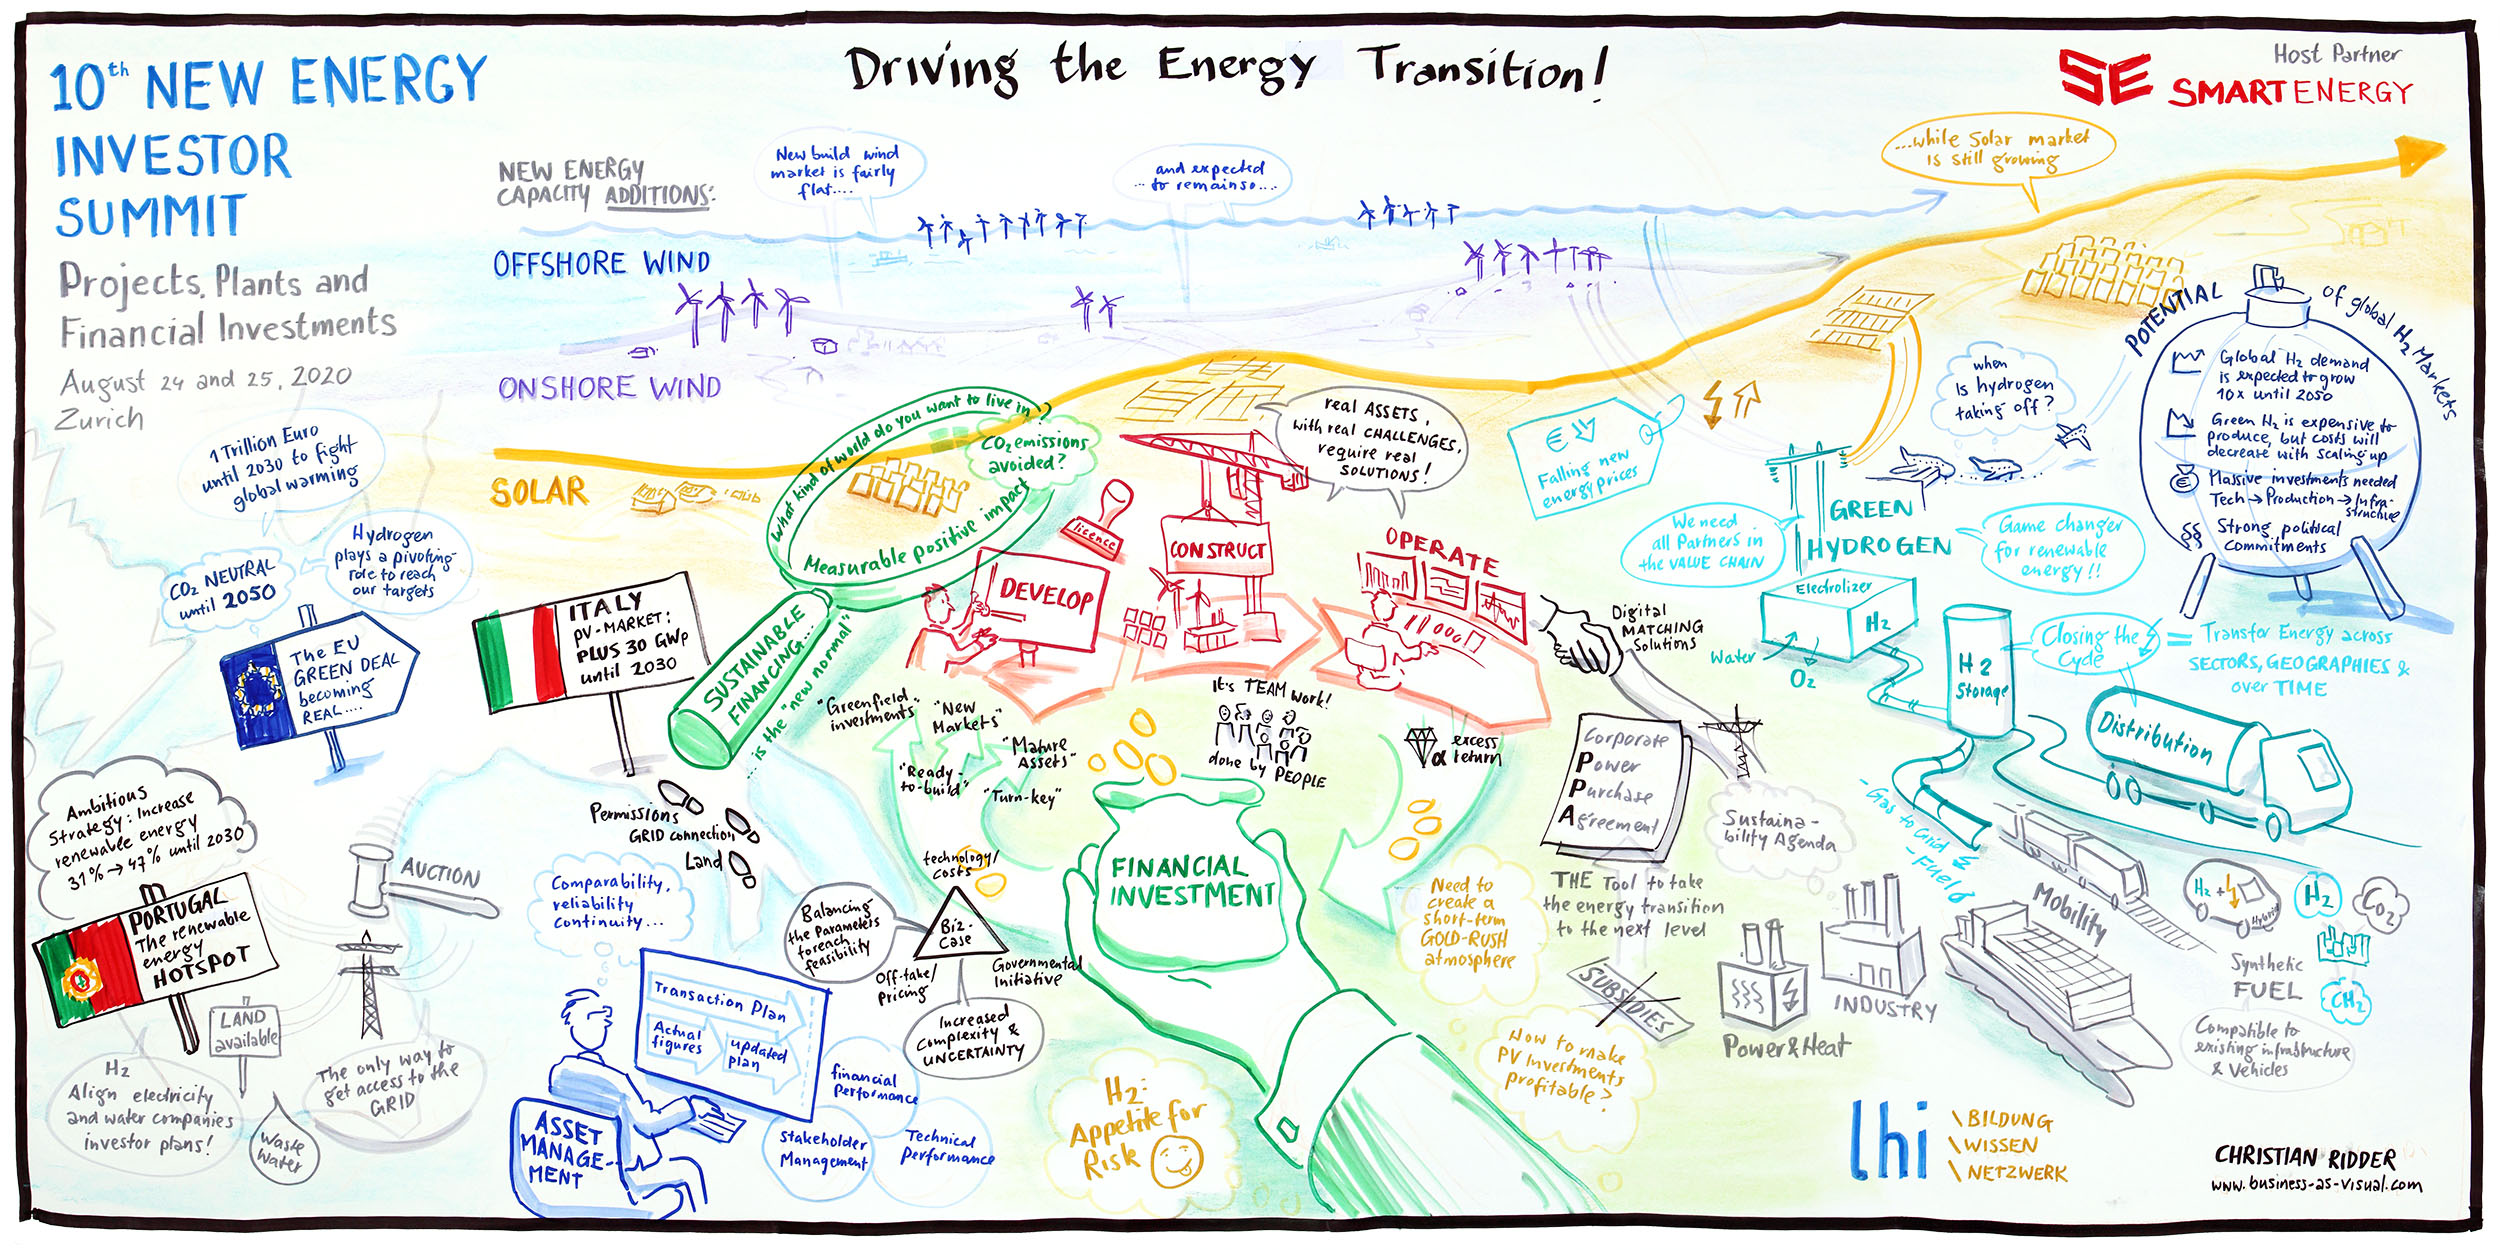 10th NEW ENERGY
INVESTOR
SUMMIT
Projects, Plants and
Financial Investments
August 24 and 25, 2020
Zurich
Driving the Energy Transition!
Host Partner
SE SMARTENERGY
NEW ENERGY
CAPACITY ADDITIONS:
New build wind
market is fairly
flat....
and expected
... to remain so....
...while Solar market
is still growing
OFFSHORE WIND
ONSHORE WIND
SOLAR
1 Trillion Euro
until 2030 to fight
global warming
CO2 NEUTRAL
until 2050
Hydrogen
plays a pivoting
role to reach
our targets
The EU
GREEN DEAL
becoming
REAL....
ITALY
PV-MARKET:
PLUS 30 GWp
until 2030
What kind of world do you want to live in?
CO2 emissions
avoided?
Measurable positive impact
SUSTAINABLE
FINANCING...
... is the "new normal"
licence
DEVELOP
CONSTRUCT
OPERATE
real ASSETS,
with real CHALLENGES,
require real
SOLUTIONS!
€
Falling new
energy prices
We need
all Partners in
the VALUE CHAIN
GREEN
HYDROGEN
Game changer
for renewable
energy!!
when
is hydrogen
taking off?
POTENTIAL of global H2 Markets
Global H2 demand
is expected to grow
10x until 2050
Green H2 is expensive to
produce, but costs will
decrease with scaling up
€
Massive investments needed
Tech → Production → Infra-
structure
§§ Strong political
Commitments
Electrolizer
H2
Water
O2
H2
Storage
Closing the
Cycle
= Transfer Energy across
SECTORS, GEOGRAPHIES &
over TIME
Distribution
- Gas to Grid
- Fuel
Digital
MATCHING
Solutions
Corporate
Power
Purchase
Agreement
Sustaina-
bility Agenda
THE Tool to take
the energy transition
to the next level
SUBSIDIES
Power & Heat
INDUSTRY
Mobility
H2 +
Hybrid
H2
CO2
Synthetic
FUEL
CH2
Compatible to
existing infrastructure
& Vehicles
"Greenfield-
investments"
"New
Markets"
"Mature
Assets"
"Ready-
to-build"
"Turn-key"
It's TEAM work!
done by PEOPLE
excess
α return
FINANCIAL
INVESTMENT
Need to
create a
short-term
GOLD-RUSH
atmosphere
How to make
PV Investments
profitable?
H2:
Appetite for
Risk
Permissions
GRID connection
Land
technology/
costs
Biz-
Case
Off-take/
pricing
Governmental
Initiative
Balancing
the Parameters
to reach
feasibility
Increased
Complexity &
UNCERTAINTY
Comparability,
reliability
Continuity...
Transaction Plan
Actual
figures
updated
plan
financial
Performance
Stakeholder
Management
Technical
Performance
ASSET
MANAGE-
MENT
Ambitious
Strategy: Increase
renewable energy
31% → 47% until 2030
PORTUGAL
The renewable
energy
HOTSPOT
AUCTION
LAND
available
H2
Align electricity
and water companies
investor plans!
Waste
Water
The only way to
get access to the
GRID
lhi
\ BILDUNG
\ WISSEN
\ NETZWERK
CHRISTIAN RIDDER
www.business-as-visual.com